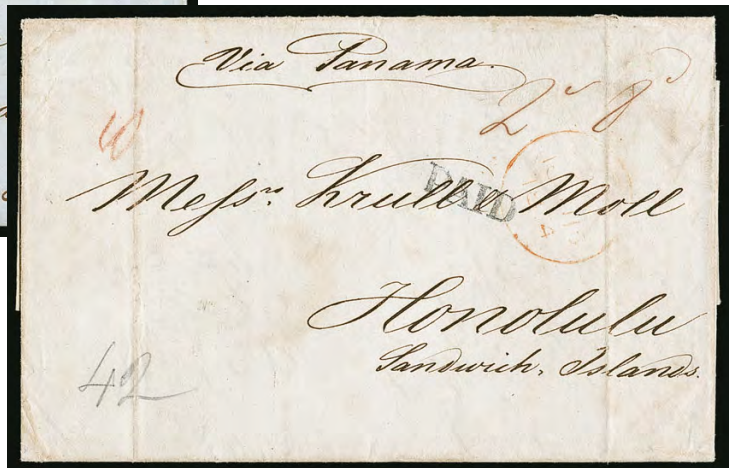 Via Panama.
2 8
Messrs. Krull & Moll
PAID
Honolulu
Sandwich, Islands.
42